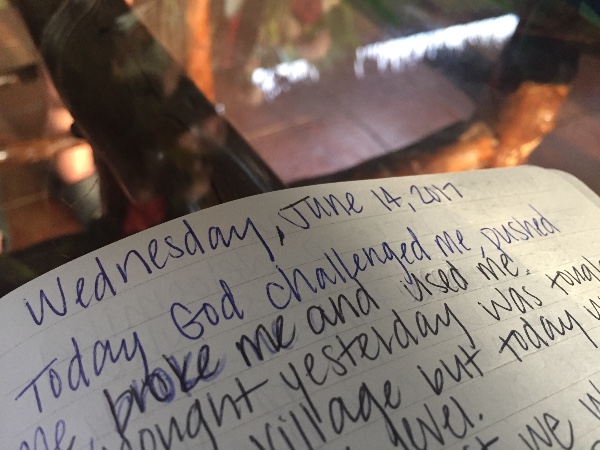 Wednesday, June 14, 2017
Today God challenged me, pushed
me, broke me and used me.
yesterday was
village but today
level.
we